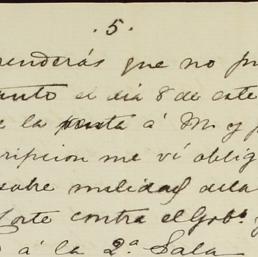 . 5 .
renderás que no pu
anto el día 8 de este
e la venta á M. y
cripcion me ví oblig
sobre nulidad de la
Corte contra el Gobº. y
á la 2ª Sala